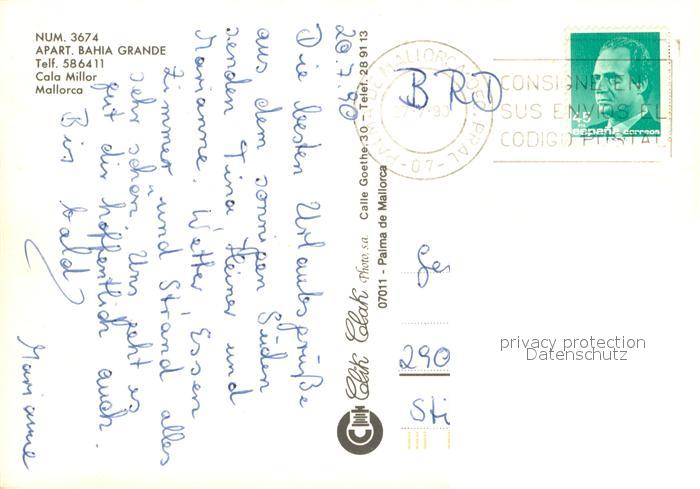 NUM. 3674
APART. BAHIA GRANDE
Telf. 586411
Cala Millor
Mallorca
20.7.90
Die besten Urlaubsgrüße
aus dem sonnigen Süden
senden Tina Heiner und
Marianne. Wetter, Essen
Zimmer und Strand alles
sehr schön. Uns geht es
gut dir hoffentlich auch.
Bis bald
Marianne
Clik Clak Photo, s.a. Calle Goethe, 30 - Telef. 28 91 13
07011 - Palma de Mallorca
MALLORCA
-07-
BRD
CONSIGNE EN
SUS ENVIOS EL
CODIGO POSTAL
45
PTA
españa correos
290
privacy protection
Datenschutz